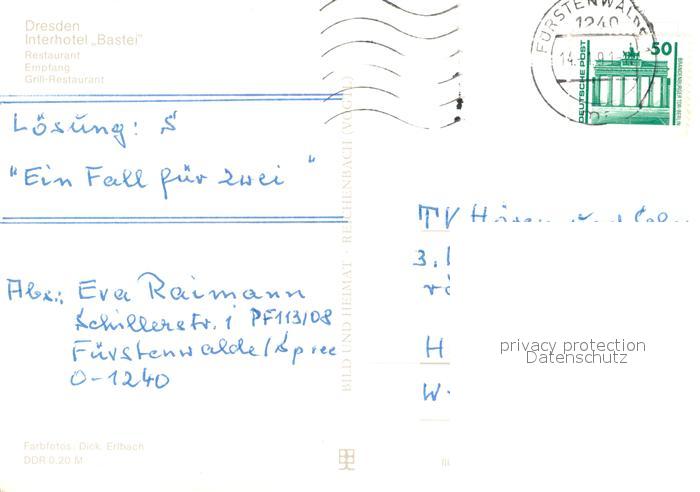 Dresden
Interhotel „Bastei"
Restaurant
Empfang
Grill-Restaurant
FÜRSTENWALDE
1240
50
DEUTSCHE POST
BRANDENBURGER TOR·BERLIN
Lösung: S
"Ein Fall für zwei "
TV Hören und
3.
Abs.: Eva Raimann
Schillerstr. 1 PF113/08
Fürstenwalde/Spree
O-1240
H
W-
BILD UND HEIMAT · REICHENBACH (VOGTL)
privacy protection
Datenschutz
Farbfotos: Dick, Erlbach
DDR 0,20 M